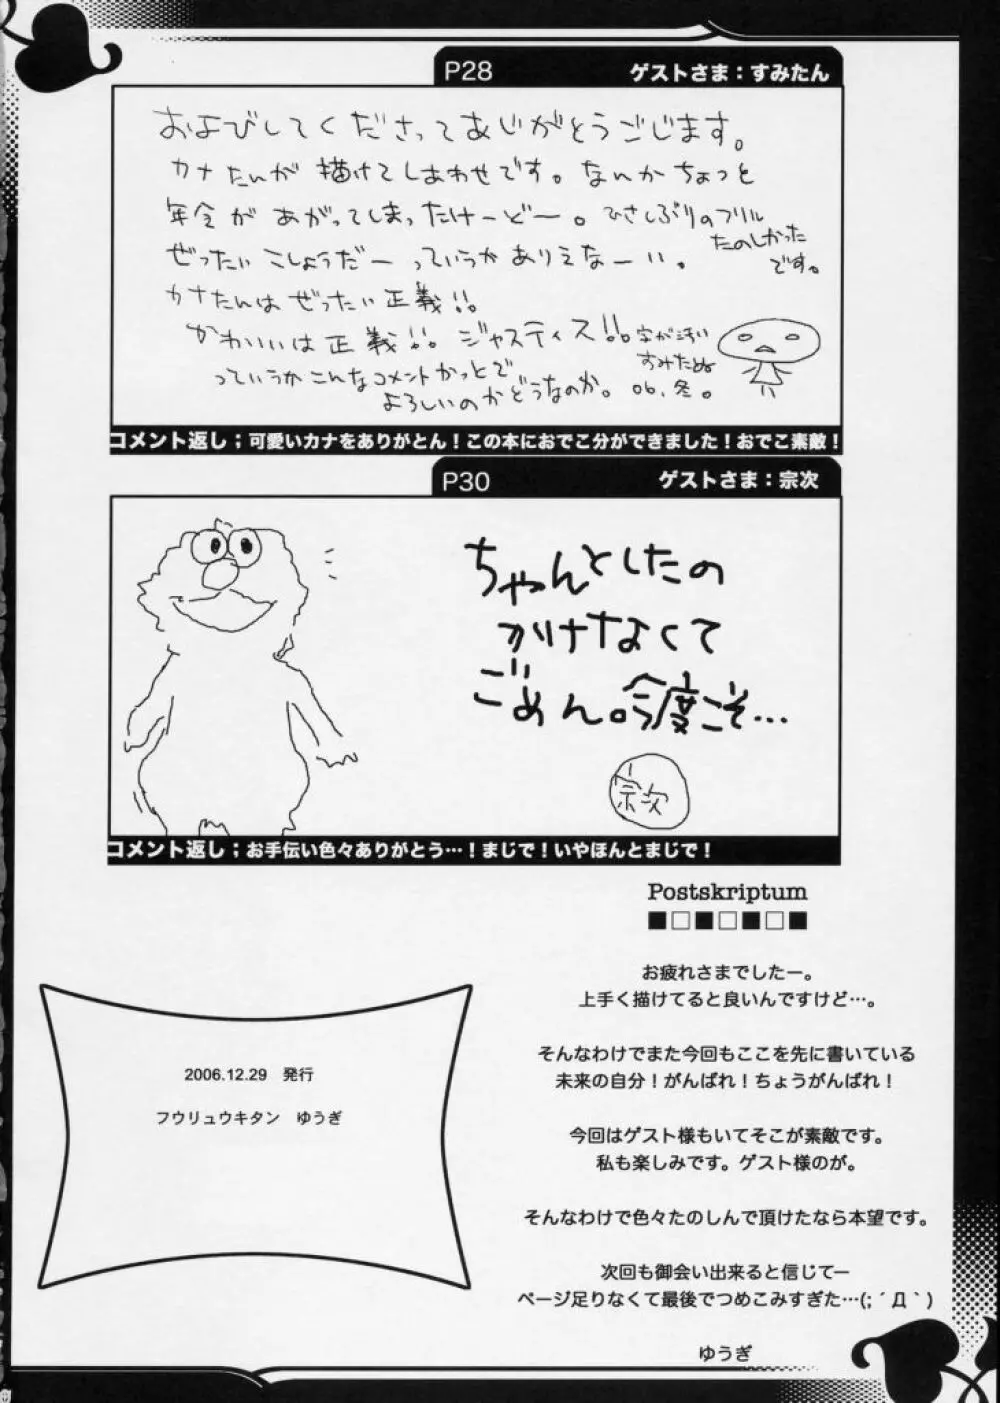 P28
ゲストさま：すみたん
およびしてくださってありがとうごじます。
カナたんが描けてしあわせです。なんかちょっと
年令があがってしまったけーどー。ひさしぶりのフリル
たのしかった
です。
ぜったいこしょうだーっていうかありえなーい。
カナたんはぜったい正義!!
かわいいは正義!!ジャスティス!!。字が汚い
すみたぬ
っていうかこんなコメントかっとで
よろしいのかどうなのか。06.冬。
コメント返し；可愛いカナをありがとん！この本におでこ分ができました！おでこ素敵！
P30
ゲストさま：宗次
ちゃんとしたの
かけなくて
ごめん。今度こそ…
宗次
コメント返し；お手伝い色々ありがとう…！まじで！いやほんとまじで！
Postskriptum
お疲れさまでしたー。
上手く描けてると良いんですけど…。
そんなわけでまた今回もここを先に書いている
未来の自分！がんばれ！ちょうがんばれ！
今回はゲスト様もいてそこが素敵です。
私も楽しみです。ゲスト様のが。
そんなわけで色々たのしんで頂けたなら本望です。
次回も御会い出来ると信じてー
ページ足りなくて最後でつめこみすぎた…(;´Д｀)
ゆうぎ
2006.12.29　発行
フウリュウキタン　ゆうぎ